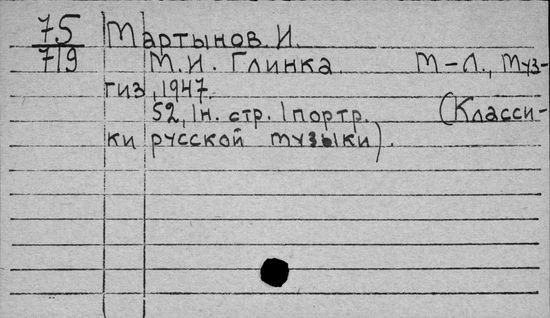 75 Мартынов И.
719 М.И. Глинка. М-Л., Муз-
гиз, 1947.
52, 1н. стр. 1 портр. (Класси-
ки русской музыки).